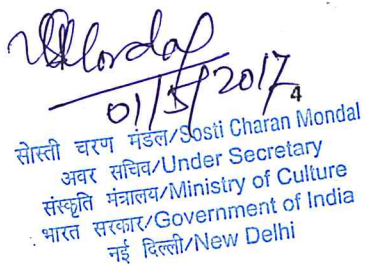 01/5/2017
4
सोस्ती चरण मंडल/Sosti Charan Mondal
अवर सचिव/Under Secretary
संस्कृति मंत्रालय/Ministry of Culture
भारत सरकार/Government of India
नई दिल्ली/New Delhi